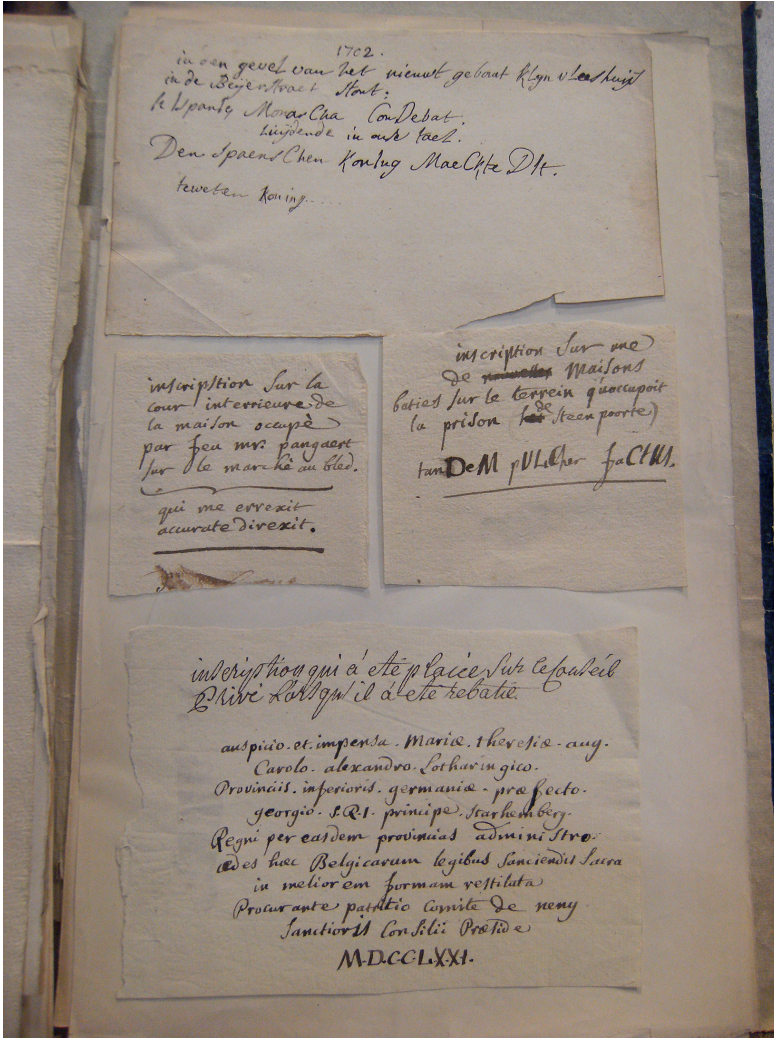 1702.
in den gevel van het nieuwt gebout klyn vleeshuijs
in de Beijerstraet stont:
hIspanIs MonarCha ConDebat.
luijdende in onse tael.
Den SpaensChen KonIng MaeCkte DIt.
teweten koning...
inscripstion sur la
cour interrieure de
la maison occupè
par feu mr. pangaert
sur le marchè au bled.
qui me errexit
accurate direxit.
inscription sur une
de maisons
baties sur le terrein qu'occupoit
la prison (de steenpoorte)
tanDeM pULCher faCtUs.
inscription qui a eté placée sur le Conseil
Privé Lorsqu'il a eté rebatie
auspicio. et. impensa. Mariæ. theresiæ. aug.
Carolo. alexandro. Lotharingico.
Provinciis. inferioris. germaniæ. præfecto.
georgio. S.R.I. principe. Starhemberg.
Regni per easdem provincias administro.
ædes hæc Belgicarum legibus sanciendis sacra
in meliorem formam restituta
Procurante patritio Comite de neny
sanctioris Consilii Præside
M.D.CC.LXXI.